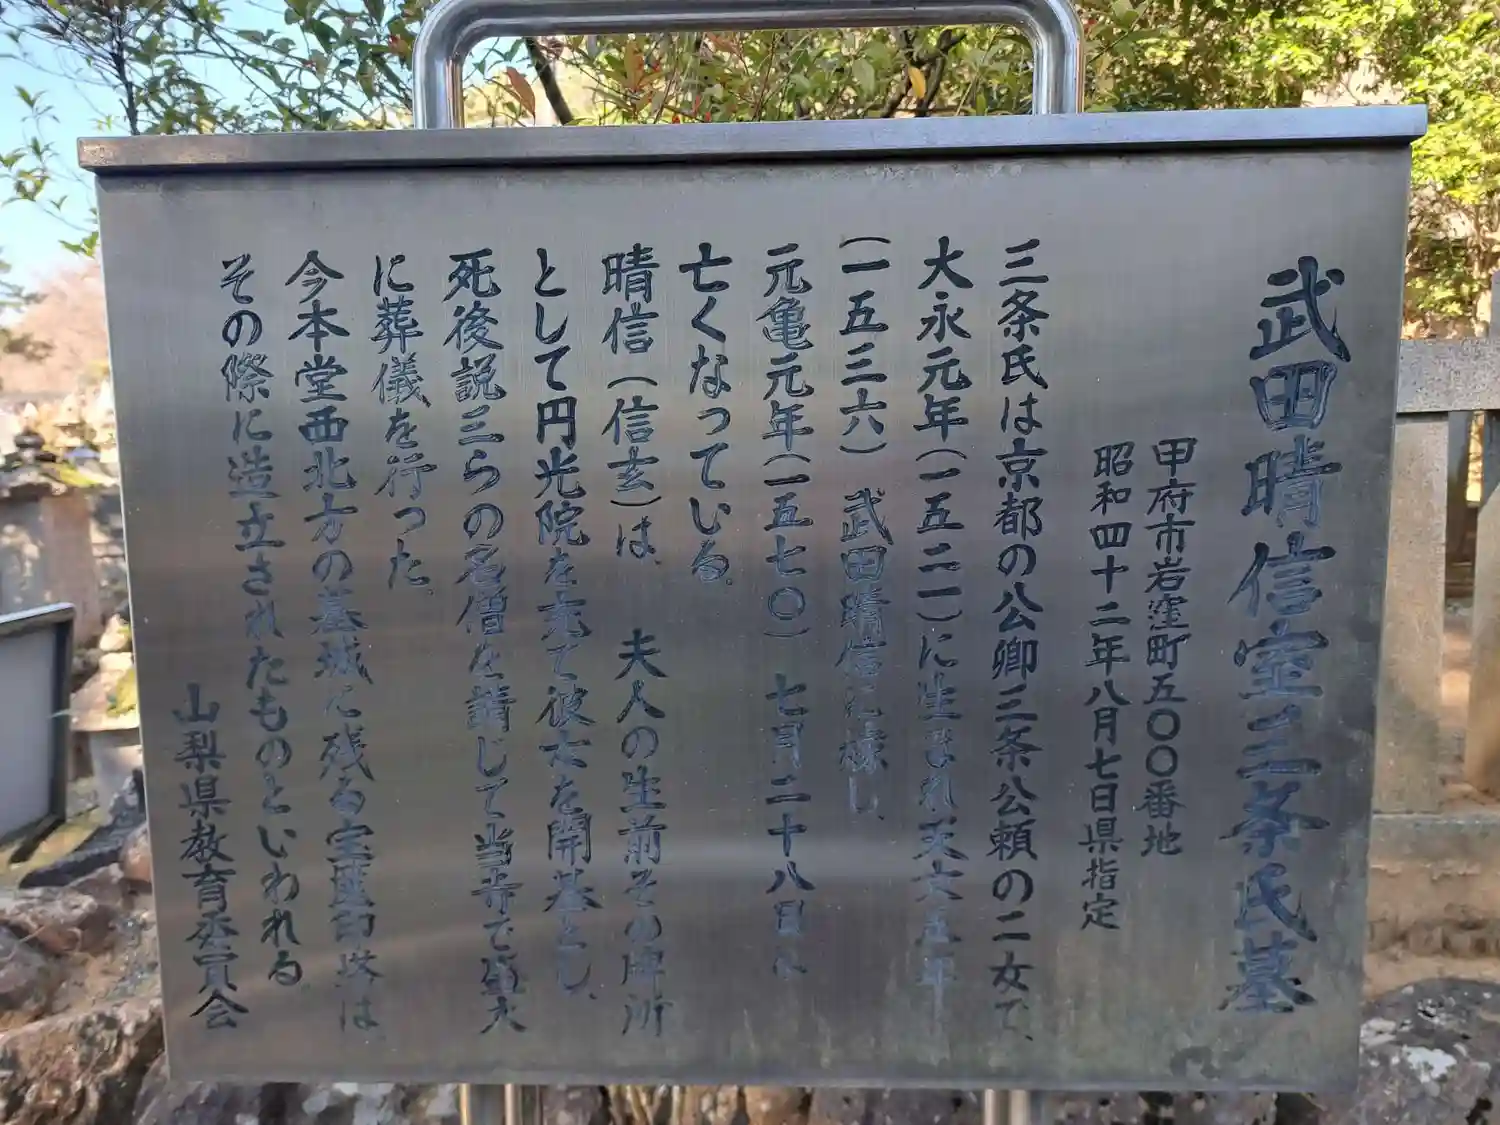 武田晴信室三条氏墓
甲府市岩窪町五〇〇番地
昭和四十二年八月七日県指定
三条氏は京都の公卿三条公頼の二女で、
大永元年(一五二一)に生まれ天文五年
(一五三六) 武田晴信に嫁し、
元亀元年(一五七〇) 七月二十八日に
亡くなっている。
晴信(信玄)は、 夫人の生前その牌所
として円光院を充て彼女を開基とし、
死後説三らの名僧を請じて当寺で盛大
に葬儀を行った。
今本堂西北方の墓域に残る宝篋印塔は
その際に造立されたものといわれる。
山梨県教育委員会